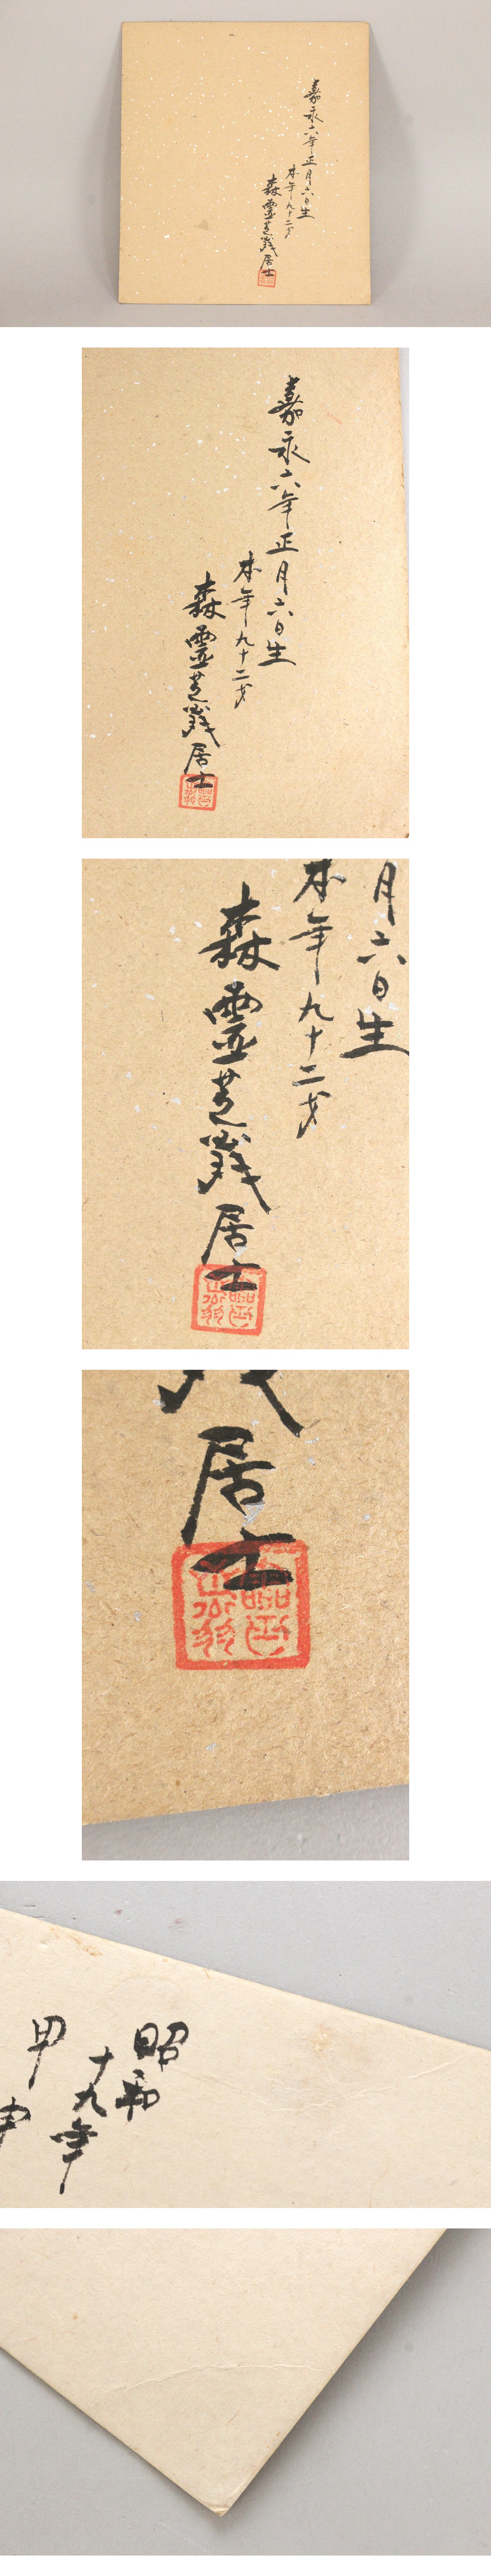 嘉永六年正月六日生
本年九十二才
森霊芝箋居士
嘉永六年正月六日生
本年九十二才
森霊芝箋居士
月六日生
本年九十二才
森霊芝箋居士
居士
昭和
十九年
甲
申